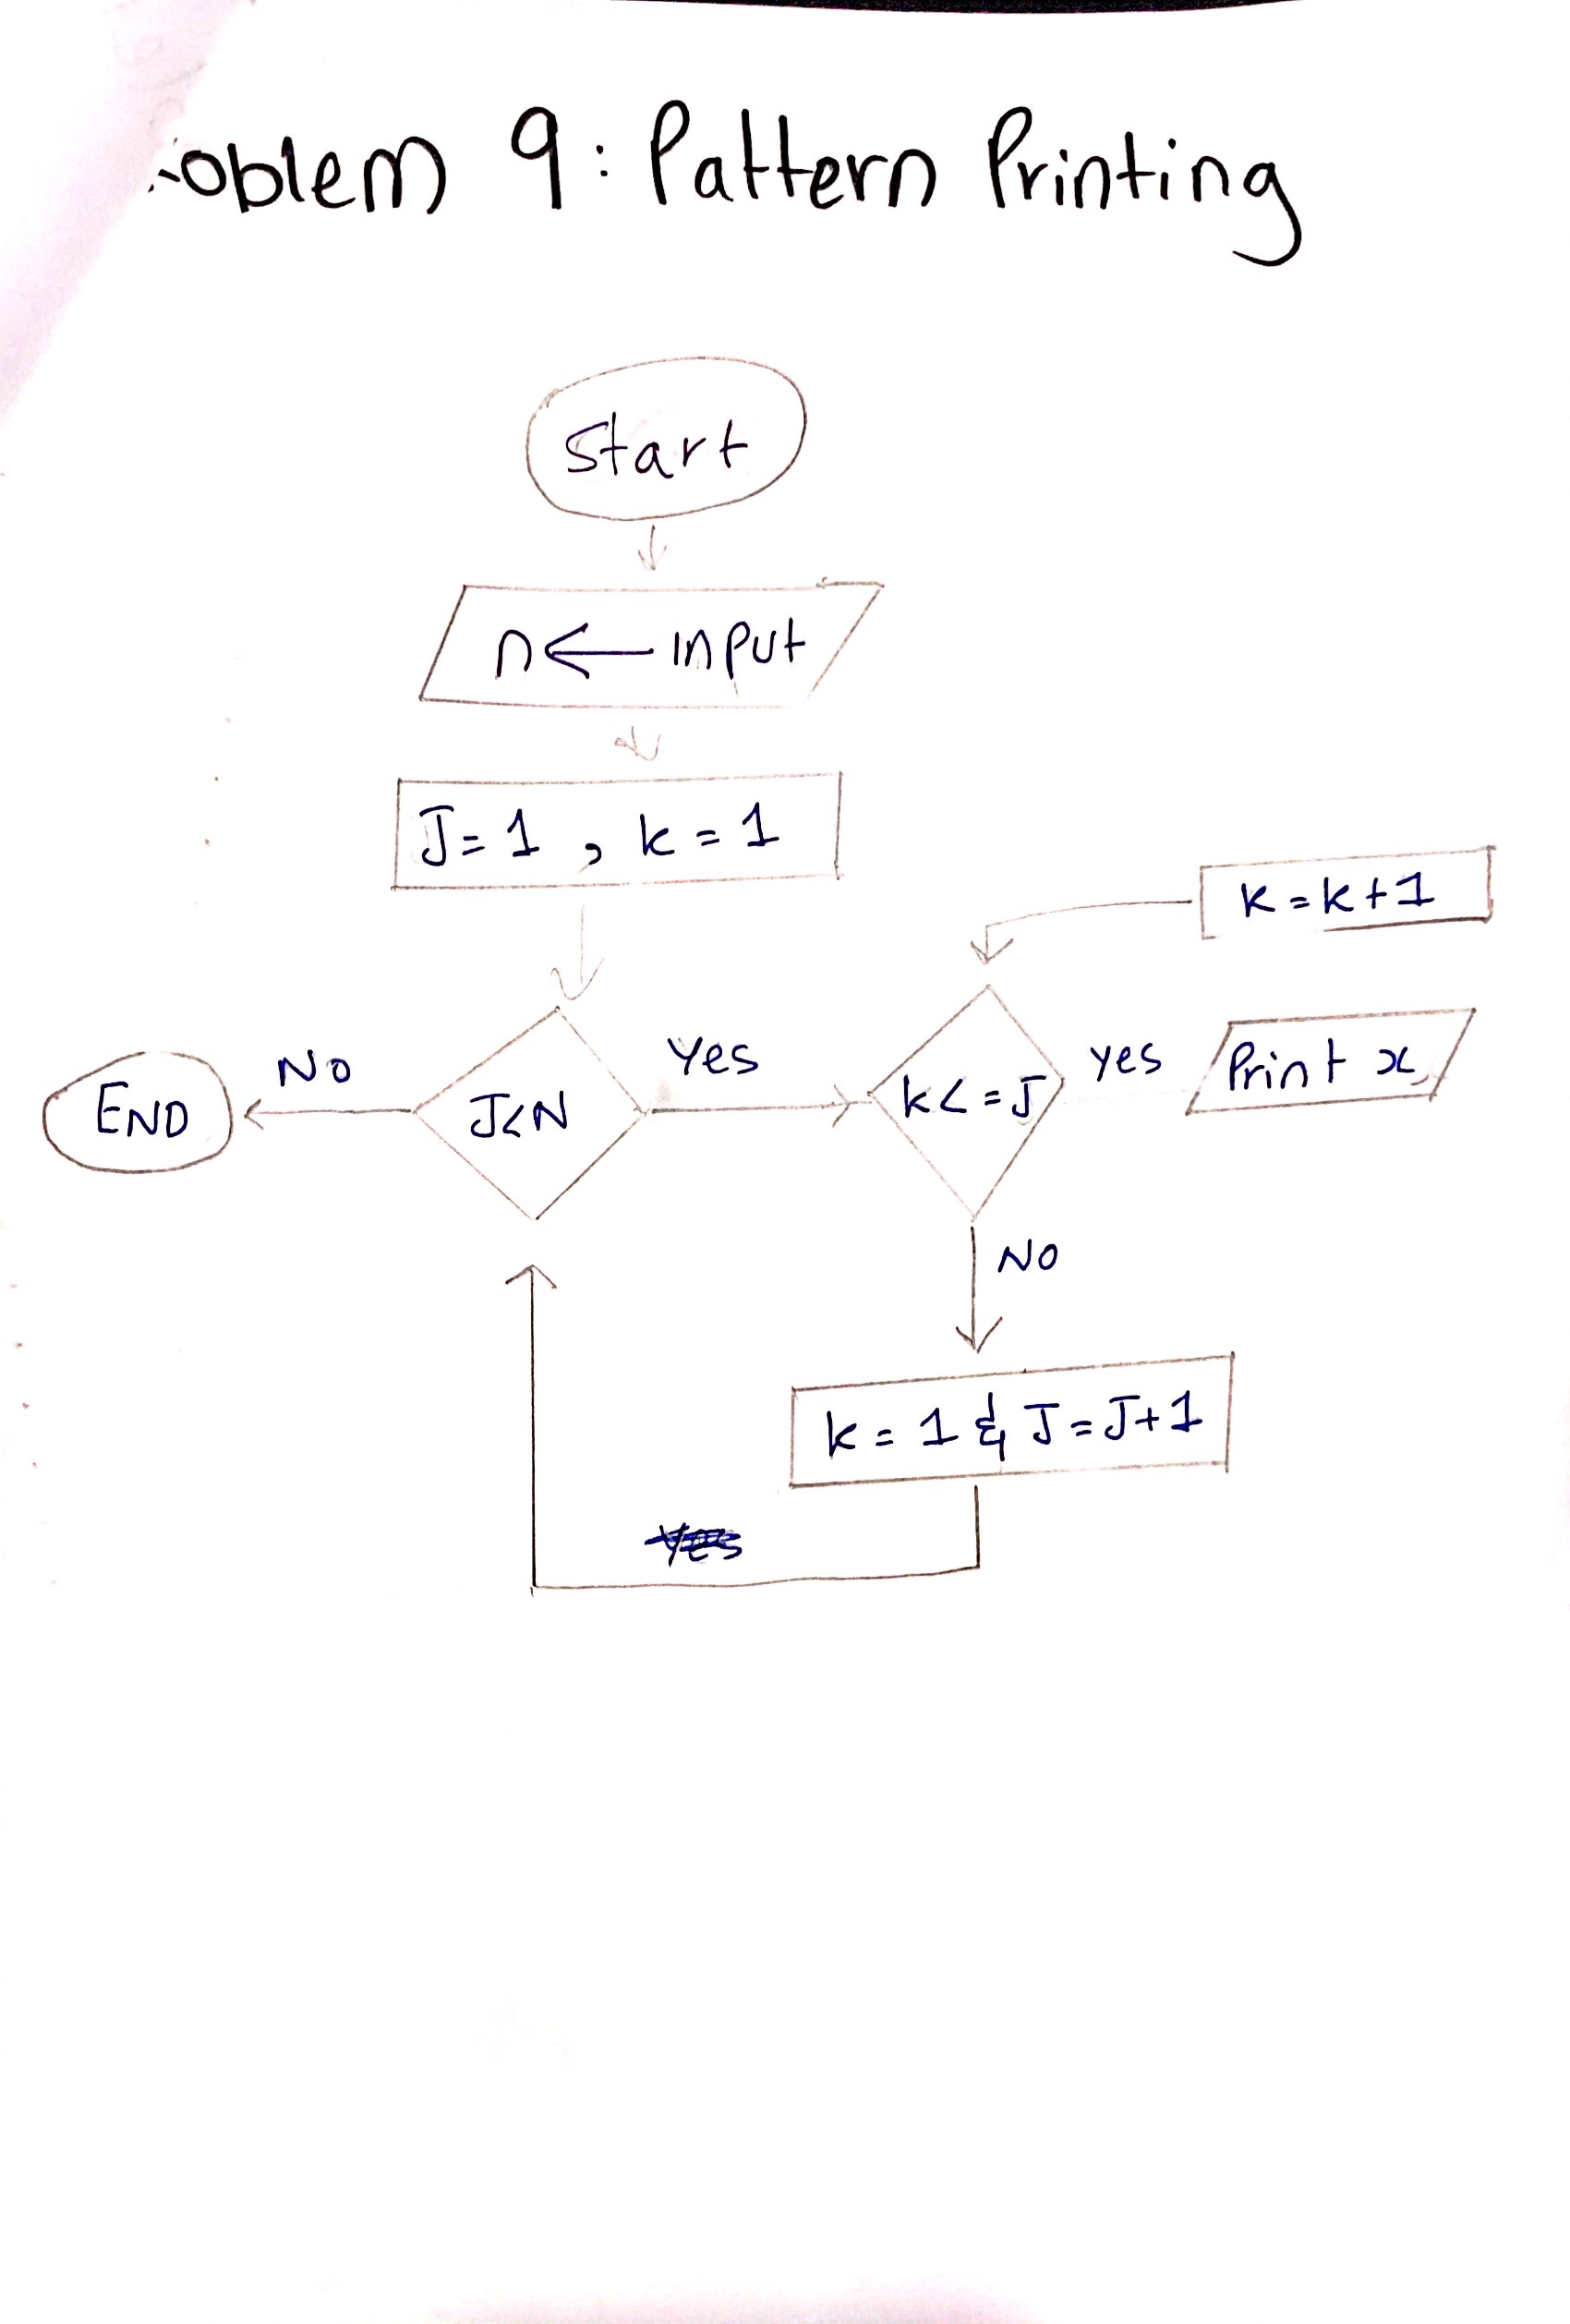 oblem 9: Pattern Printing
Start
n ← input
J=1 , k=1
k=k+1
END
No
J<N
Yes
k<=J
yes
Print x
NO
k=1 & J=J+1